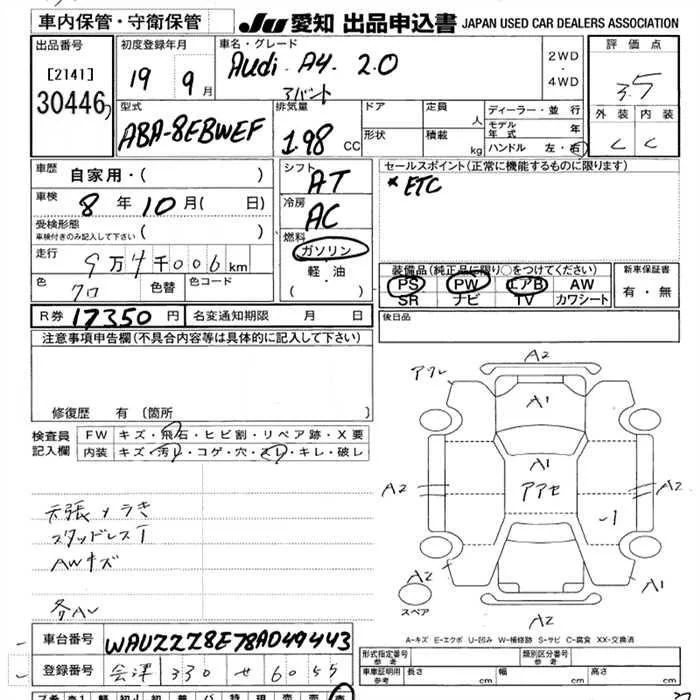 車内保管・守衛保管
JU 愛知 出品申込書 JAPAN USED CAR DEALERS ASSOCIATION
出品番号
[2141]
30446
初度登録年月
19 9月
車名・グレード
Audi. A4. 2.0
アバント
2WD
・
4WD
評価点
3.5
外装 内装
C C
型式
ABA-8EBWEF
排気量
1.98 CC
ドア
形状
定員 人
積載 kg
ディーラー・並行
モデル年式 年
ハンドル 左・右
車歴
自家用・( )
車検
8年10月( 日)
受検形態
車検付きのみ記入して下さい ( )
走行
9万4千006km
色
クロ
色替
色コード
シフト
AT
冷房
AC
燃料
ガソリン
軽・油
( ・ )
セールスポイント(正常に機能するものに限ります)
*ETC
装備品(純正品に限り○をつけてください)
PS PW エアB AW
SR ナビ TV カワシート
新車保証書
有・無
R券 17350円
名変通知期限 月 日
後日品
注意事項申告欄(不具合内容等は具体的に記入して下さい)
修復歴 有(箇所
検査員記入欄
FW キズ・飛石・ヒビ割・リペア跡・X要
内装 キズ・汚れ・コゲ・穴・スレ・キレ・破レ
スタッドレス
AWキズ
A2
アクレ
A1
A1
アアセ
A2
A2
A2
A1
A2
スペア
A-キズ E-エクボ U-凹み W-補修跡 S-サビ C-腐食 XX-交換済
車台番号
WAUZZZ8E78A049443
登録番号
会津 330 せ 6055
形式指定番号
参考
類別区分番号
参考
車庫証明用
参考
長さ 幅 高さ
cm